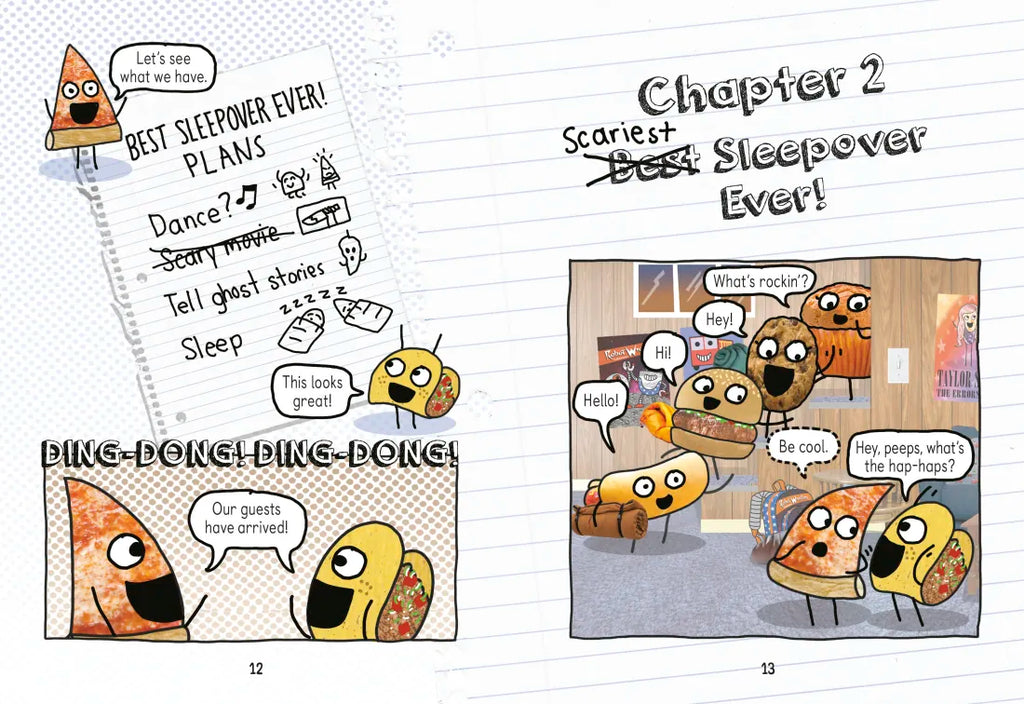 Let's see
what we have.
BEST SLEEPOVER EVER!
PLANS
Dance?
Scary movie
Tell ghost stories
zzzzz
Sleep
This looks
great!
DING-DONG! DING-DONG!
Our guests
have arrived!
12
Chapter 2
Scariest
Best Sleepover
Ever!
What's rockin'?
Hey!
Hi!
Hello!
Be cool.
Hey, peeps, what's
the hap-haps?
TAYLOR
THE ERRORS
13